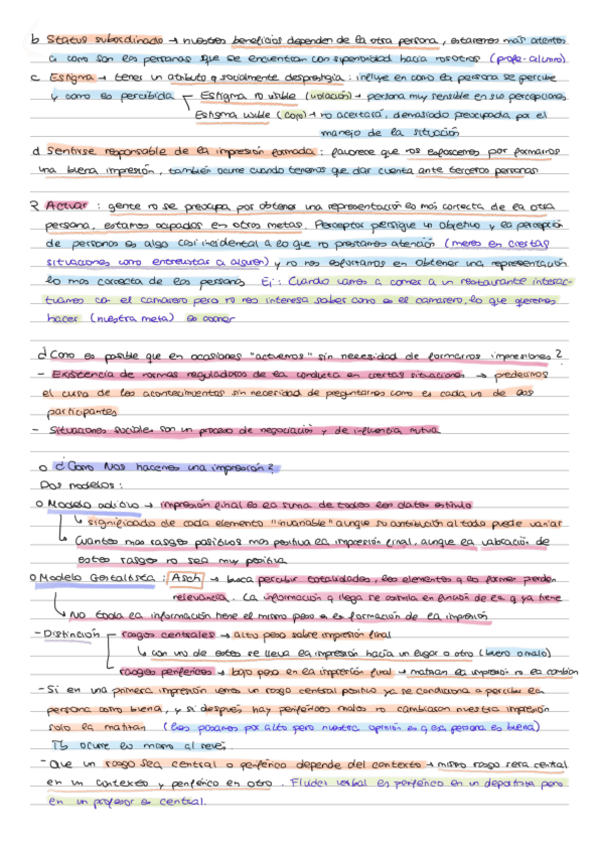 b Status subordinado → nuestros beneficios dependen de la otra persona, estaremos más atentos
a como son las personas que se encuentran con superioridad hacia nosotros (profe-alumno).
c. Estigma → tienes un atributo q socialmente desprestigia: influye en como la persona se percibe
y como es percibida Estigma no visible (violación) → persona muy sensible en sus percepciones.
Estigma visible (cojo) → no acertará, demasiado preocupada por el
manejo de la situación
d Sentirse responsable de la impresión formada: favorece que nos esforcemos por formarnos
una buena impresión, también ocurre cuando tenemos que dar cuenta ante terceras personas
2 Actuar: gente no se preocupa por obtener una representación lo más correcta de la otra
persona, estamos ocupados en otras metas. Perceptor persigue un objetivo y la percepción
de personas es algo casi incidental a lo que no prestamos atención (menos en ciertas
situaciones como entrevistas a alguien) y no nos esforzamos en obtener una representación
lo mas correcta de las personas Ej: Cuando vamos a comer a un restaurante interac-
tuamos con el camarero pero no nos interesa saber como es el camarero, lo que queremos
hacer (nuestra meta) es comer
¿Como es posible que en ocasiones "actuemos" sin necesidad de formarnos impresiones?
- Existencia de normas reguladoras de la conducta en ciertas situaciones → predecimos
el curso de los acontecimientos sin necesidad de preguntarnos como es cada uno de los
participantes
- Situaciones sociales son un proceso de negociación y de influencia mutua
o ¿Como Nos hacemos una impresión?
Dos modelos:
o Modelo aditivo → impresión final es la suma de todos los datos estímulo
↳ significado de cada elemento "invariable" aunque su contribución al todo puede variar
↳ Cuantos mas rasgos positivos mas positiva la impresión final, aunque la valoración de
estos rasgos no sea muy positiva
o Modelo Gestaltista: Asch → busca percibir totalidades, los elementos q los forman pierden
relevancia. La información q llega se asimila en función de la q ya tiene
↳ No toda la información tiene el mismo peso en la formación de la impresión
- Distinción rasgos centrales → alto peso sobre impresión final
↳ con uno de estos se lleva la impresión hacia un lugar o otro (bueno o malo)
rasgos periféricos → bajo peso en la impresión final → matizan la impresión no la cambian
- Si en una primera impresión vemos un rasgo central positivo ya se condiciona a percibir la
persona como buena, y si después hay periféricos malos no cambiaran nuestra impresión
solo la matizan (los pasamos por alto pero nuestra opinión es q esa persona es buena)
Tb ocurre lo mismo al revés.
- Que un rasgo sea central o periférico depende del contexto → mismo rasgo sera central
en un contexto y periférico en otro. Fluidez verbal es periférico en un deportista pero
en un profesor es central.